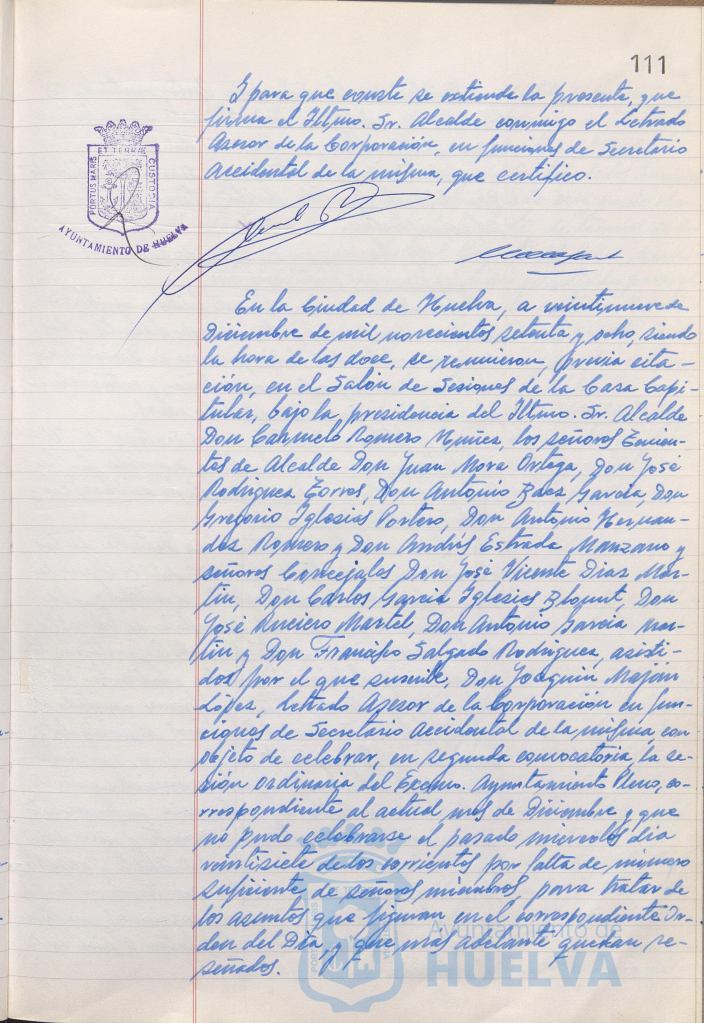 111
Y para que conste se extiende la presente, que
firma el Iltmo. Sr. Alcalde conmigo el Letrado
Asesor de la Corporación, en funciones de Secretario
Accidental de la misma, que certifico.
PORTUS MARIS ET TERRAE CUSTODIA
AYUNTAMIENTO DE HUELVA
En la Ciudad de Huelva, a veintinueve de
Diciembre de mil novecientos setenta y ocho, siendo
la hora de las doce, se reunieron, previa cita-
ción, en el Salón de Sesiones de la Casa Capi-
tular, bajo la presidencia del Iltmo. Sr. Alcalde
Don Carmelo Romero Núñez, los señores Tenien-
tes de Alcalde Don Juan Mora Ortega, Don José
Rodriguez Torres, Don Antonio Baez Garcia, Don
Gregorio Iglesias Portero, Don Antonio Hernan-
dez Romero y Don Andrés Estrada Manzano y
señores Concejales Don José Vicente Diaz Mar-
tín, Don Carlos Garcia Iglesias Blount, Don
José Ruciero Martel, Don Antonio Garcia Mar-
tín y Don Francisco Salgado Rodriguez, asisti-
dos por el que suscribe, Don Joaquin Majón
López, Letrado Asesor de la Corporación en fun-
ciones de Secretario Accidental de la misma, con
objeto de celebrar, en segunda convocatoria, la se-
sión ordinaria del Excmo. Ayuntamiento Pleno, co-
rrespondiente al actual mes de Diciembre y que
no pudo celebrarse el pasado miercoles dia
veintisiete de los corrientes por falta de número
suficiente de señores miembros, para tratar de
los asuntos que figuran en el correspondiente Or-
den del Dia y que más adelante quedan re-
señados.
Ayuntamiento de
HUELVA